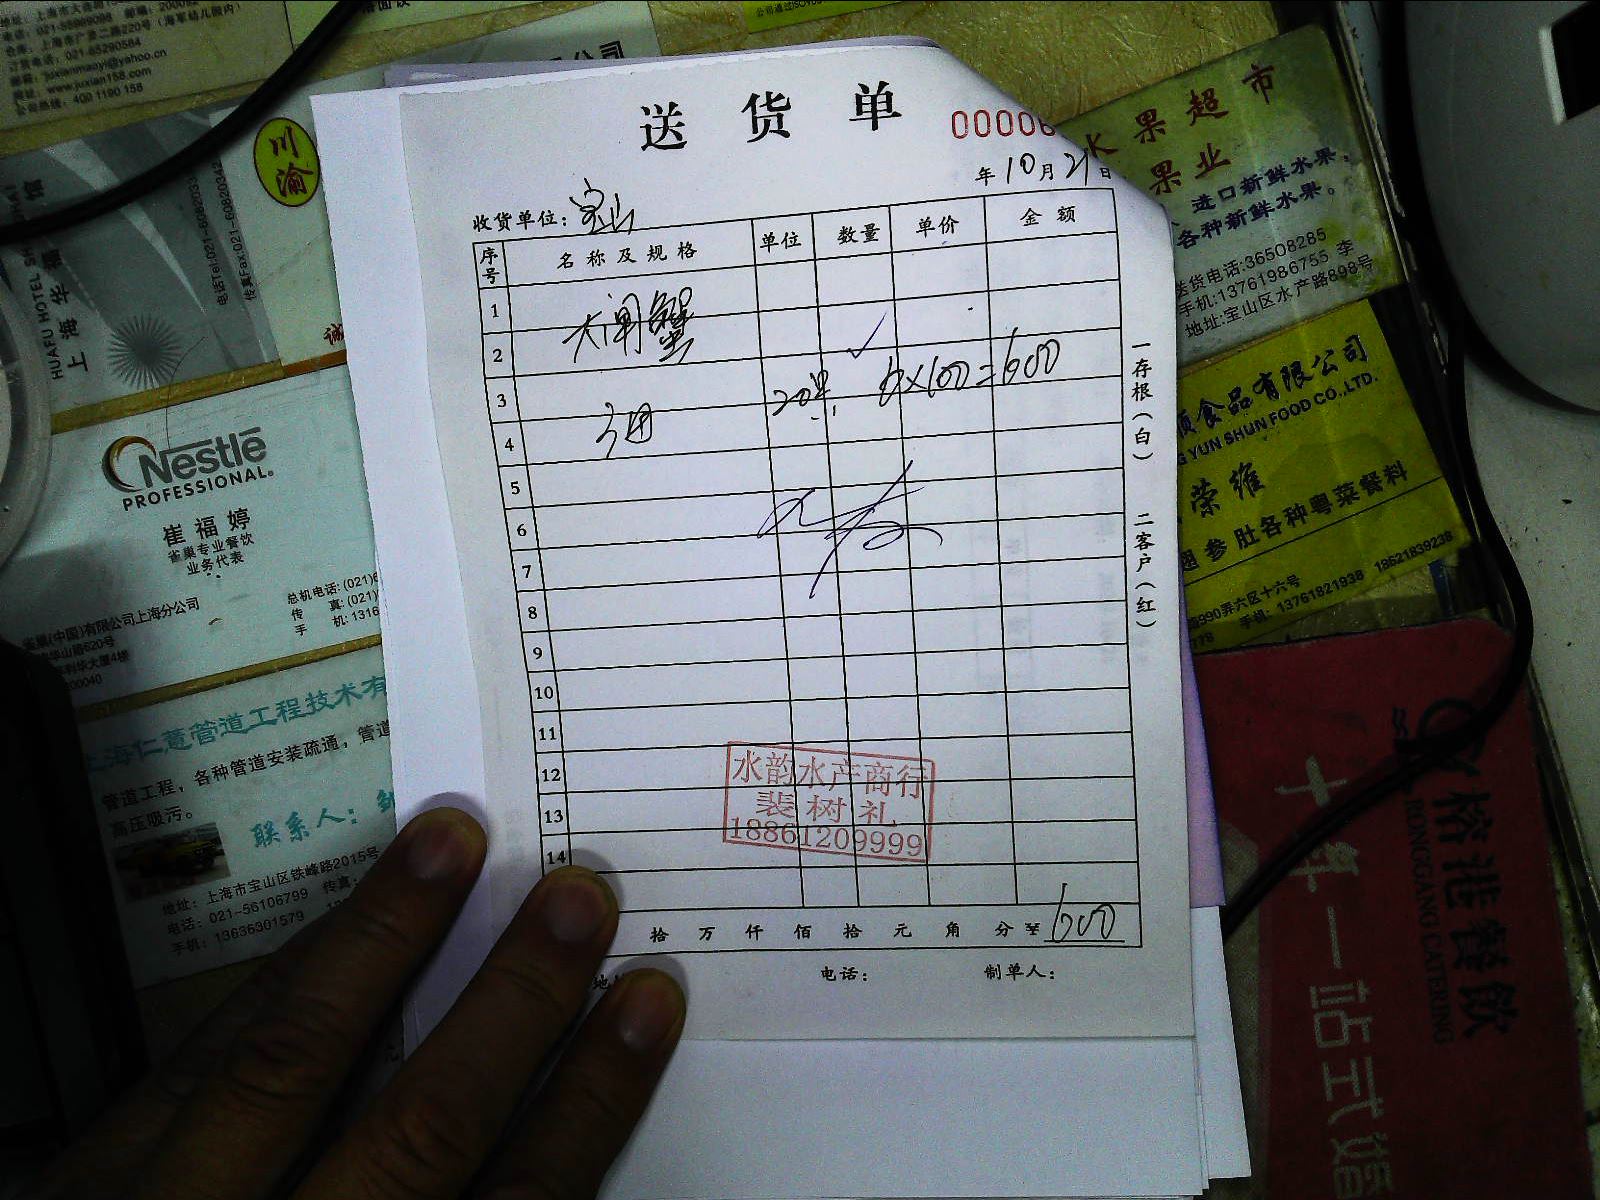 送货单
00006
年10月21日
收货单位：宝山
序号 名称及规格 单位 数量 单价 金额
1
大闸蟹
2
3
20只 6×100=600
4
5
6
7
8
9
10
11
12
13
14
水韵水产商行
裴树礼
18861209999
拾万仟佰拾元角分 600
电话： 制单人：
一存根（白） 二客户（红）
电话：021-65290584
订货电话：021-65290584
邮箱：juxianmaoyi@yahoo.cn
网址：www.juxian158.com
公司热线：400 1190 158
川渝
HUAFU HOTEL SH
上海华
电话Tel:021-6082033
传真Fax:021-60820342
诚
Nestlé
PROFESSIONAL
崔福婷
雀巢专业餐饮
业务代表
总机电话：(021)6
传 真：(021)
手 机：1316
雀巢(中国)有限公司上海分公司
华山路620号
利华大厦4楼
00040
上海仁薏管道工程技术有
管道工程，各种管道安装疏通，管道
高压吸污。
联系人：
地址：上海市宝山区铁峰路2015号
电话：021-56106799 传真：
手机：13636301579
水果超市
果业
进口新鲜水果，
各种新鲜水果。
送货电话:36508285
手机:13761986755 李
地址:宝山区水产路898号
顺食品有限公司
G YUN SHUN FOOD CO.,LTD.
荣维
翅参肚各种粤菜餐料
990弄六区十六号
手机：13761821938 18621839238
裕港餐飲
RONGGANG CATERING
一站式